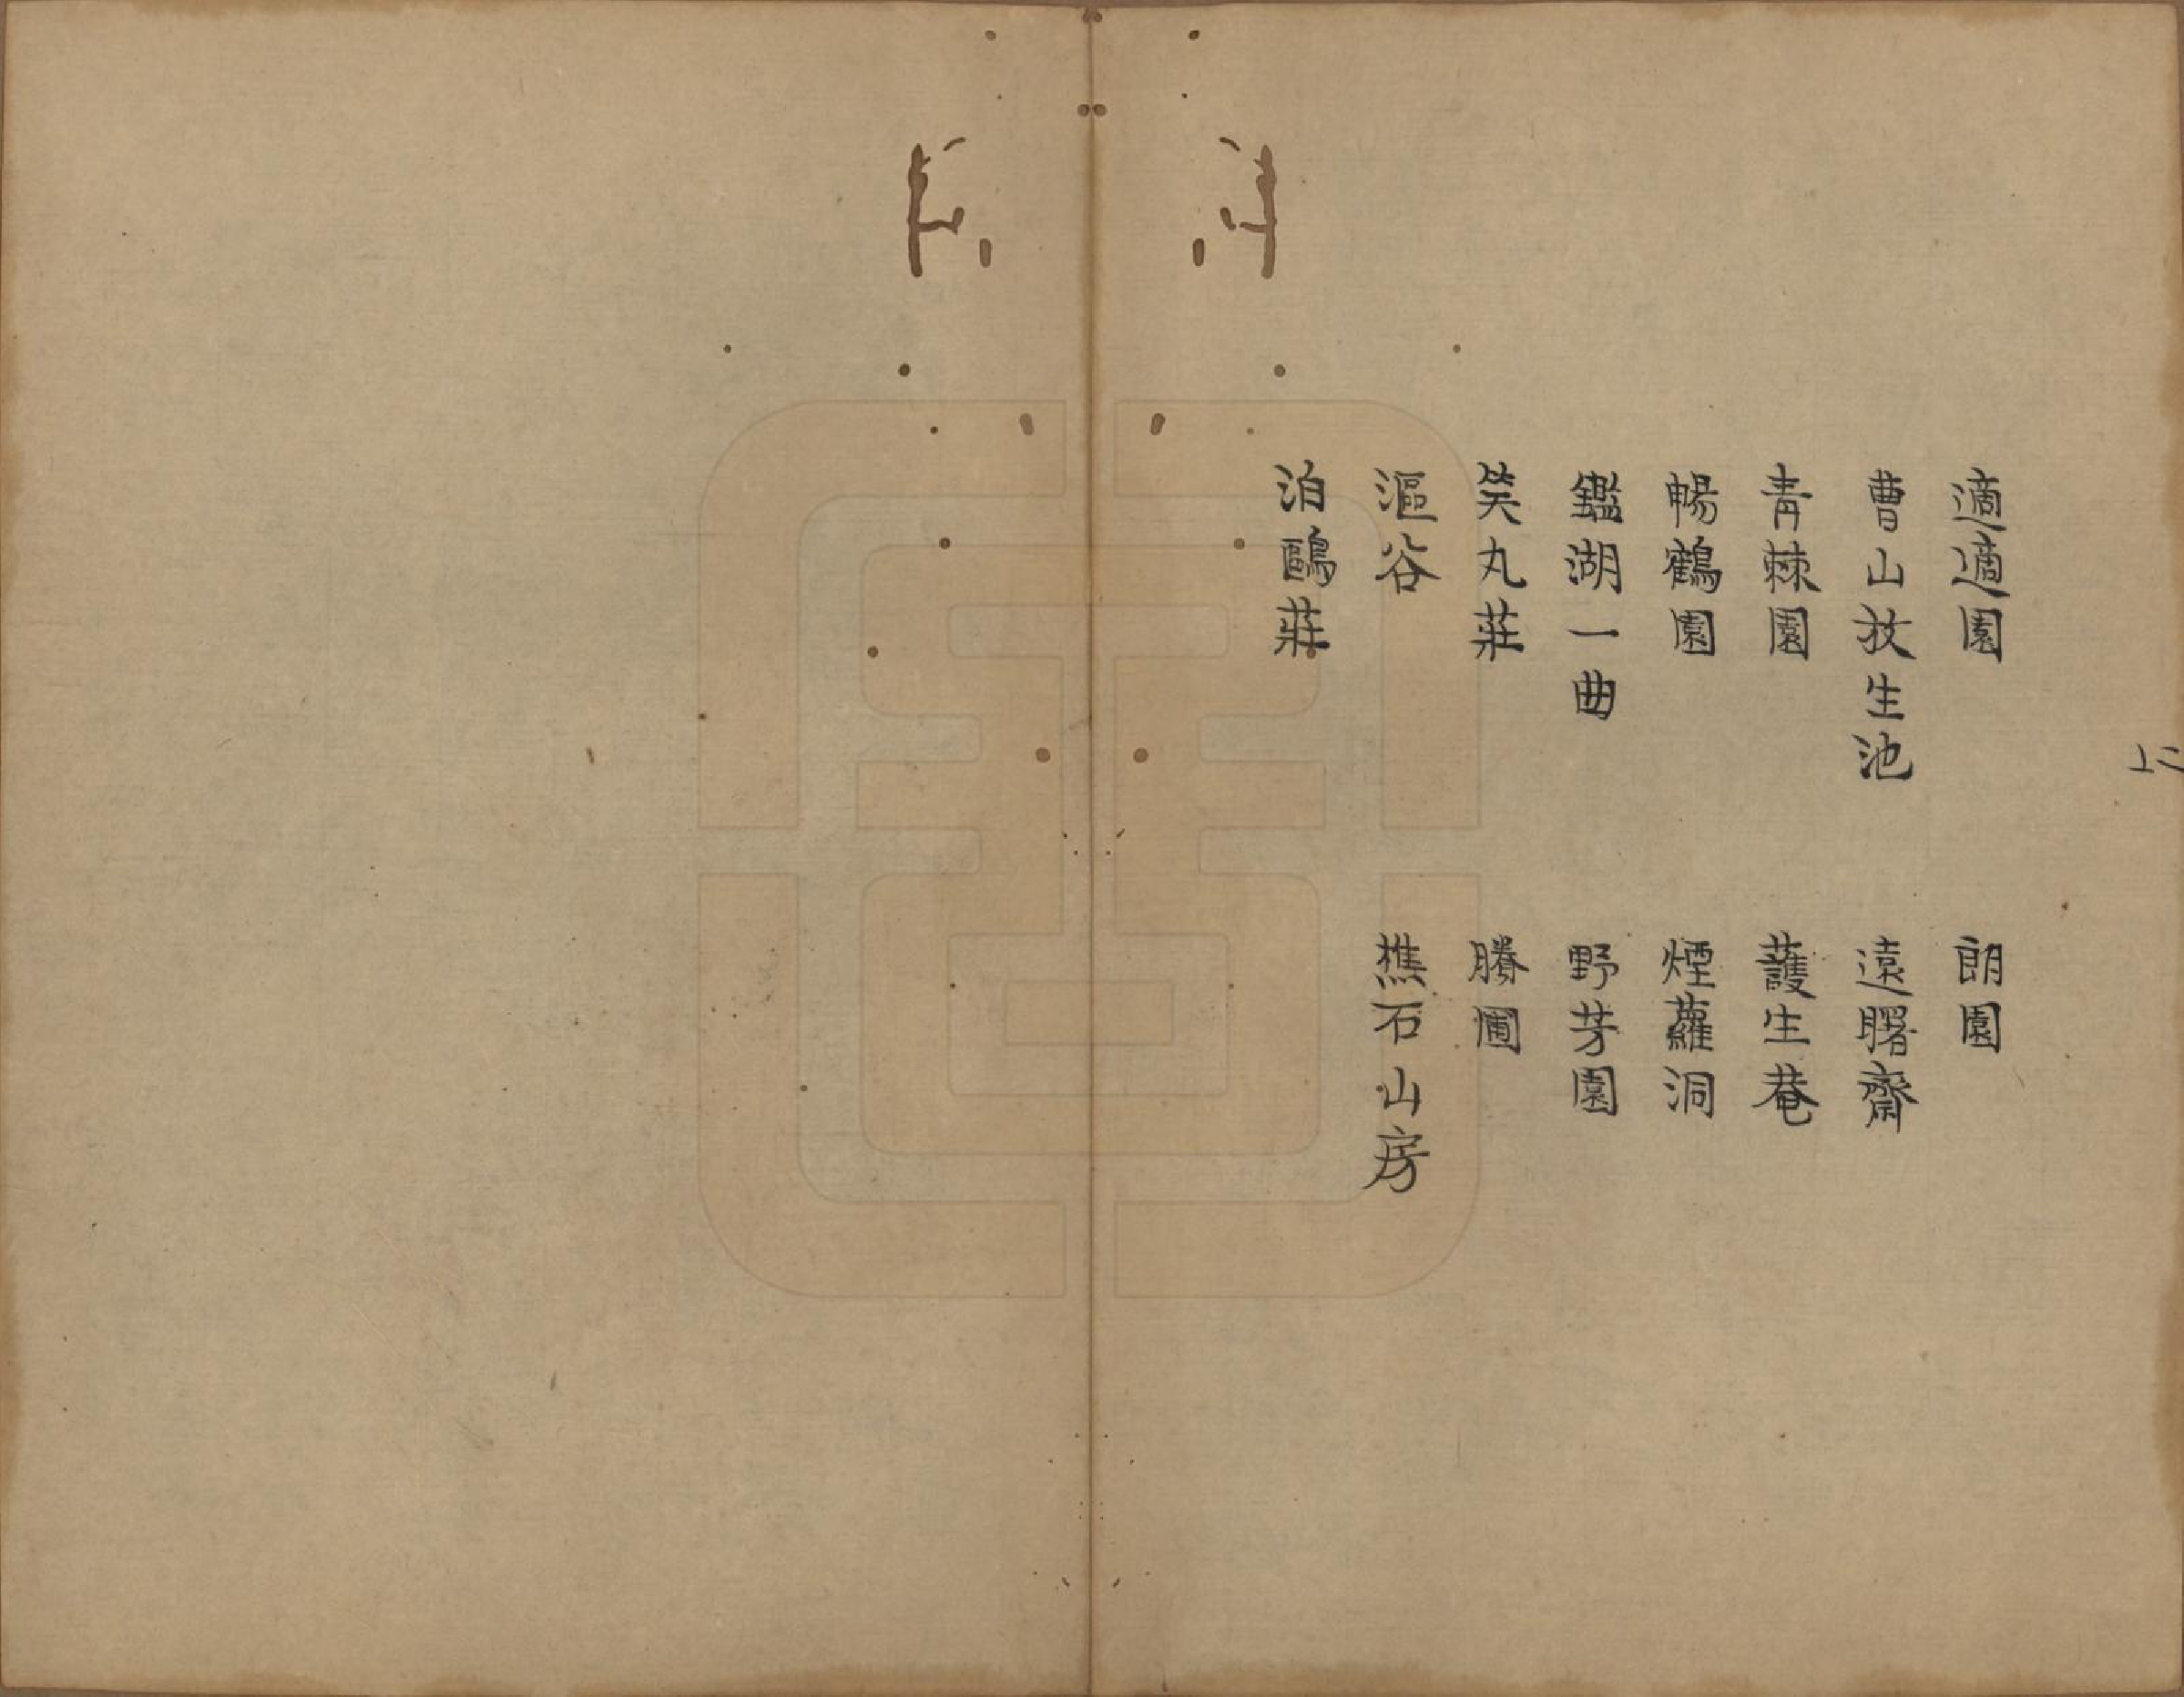 適適園 朗園
曹山放生池 遠曙齋
青棘園 護生菴
暢鶴園 煙蘿洞
鑑湖一曲 野芽園
笑丸莊 勝圃
漚谷 樵石山房
泊鷗莊